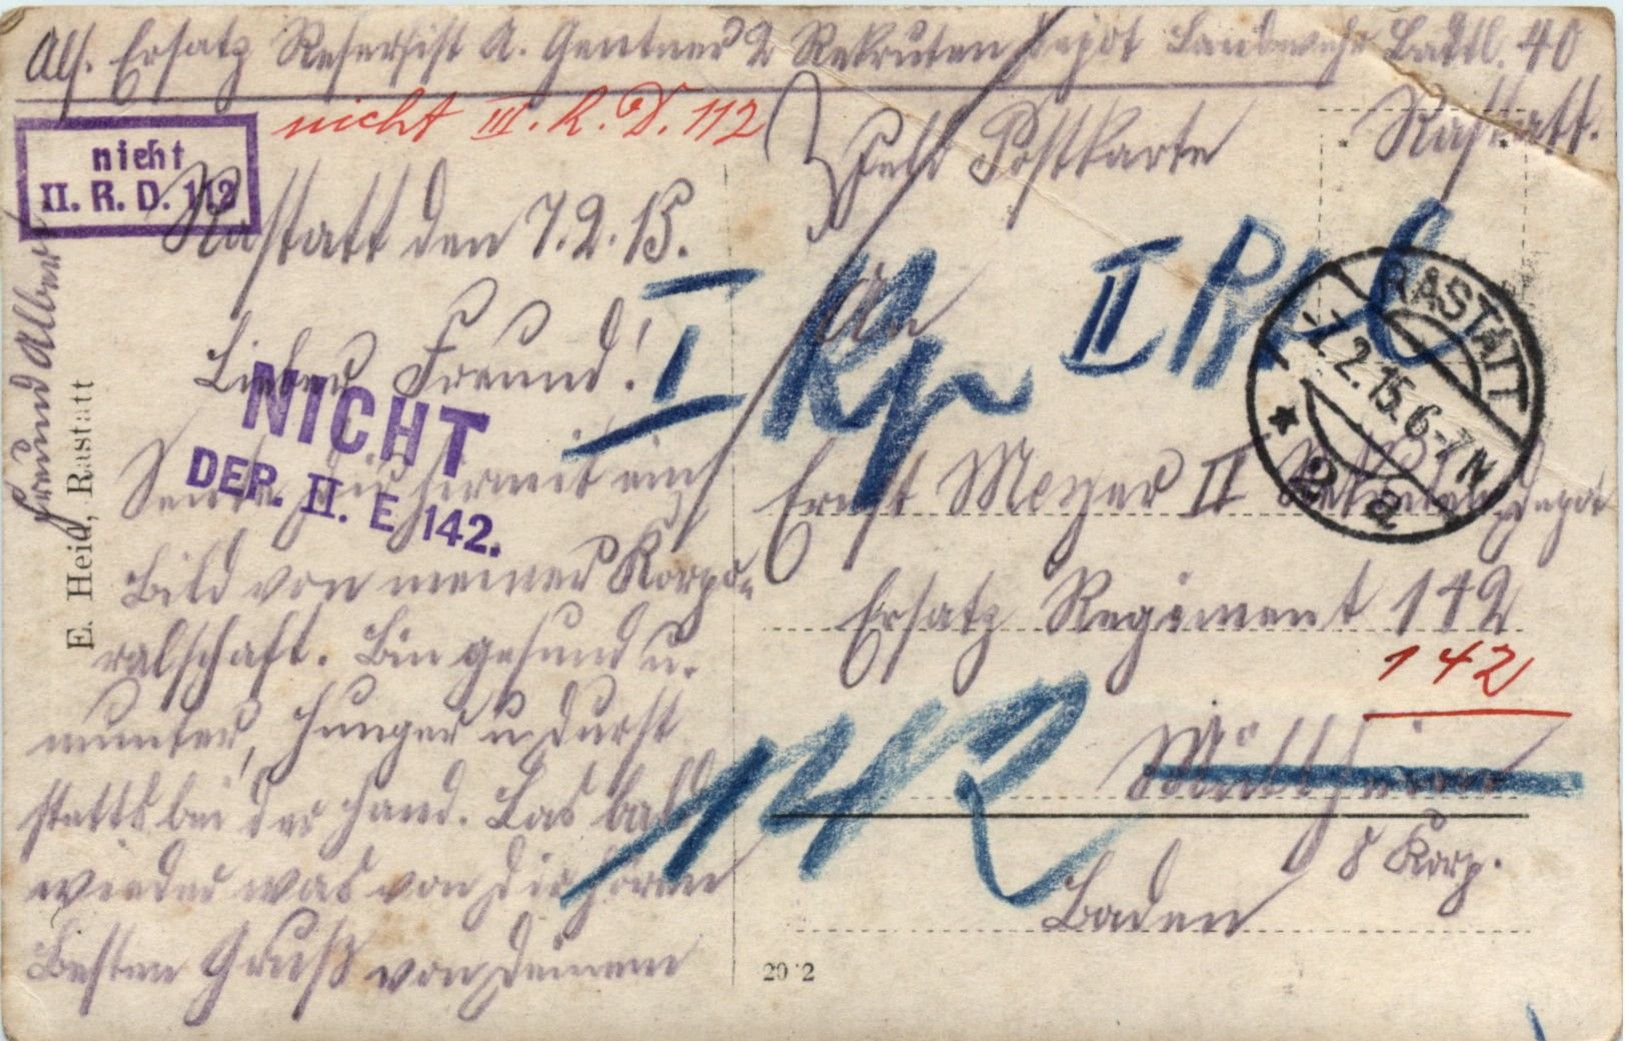 Abs. Ersatz Reservist A. Gentner 2 Rekruten Depot Landwehr Battl. 40
Rastatt.
nicht III. R. D. 112
nicht
II. R. D. 112
Feld Postkarte
Rastatt den 7.2.15.
Lieber Freund!
NICHT
DEP. II. E 142.
Sende Dir hiermit ein
Bild von meiner Korpo-
ralschaft. Bin gesund u.
munter, Hunger u Durst
stetts bei der Hand. Las bald
wieder was von Dir hören
Besten Gruß von Deinem
Freund Albert
E. Heid, Rastatt
I Kp II
RASTATT
7.2.15.6-7N
* 2 a
An
Ernst Meyer II Rekruten Depot
Ersatz Regiment 142
142
142
Müllheim
8 Korp.
Baden